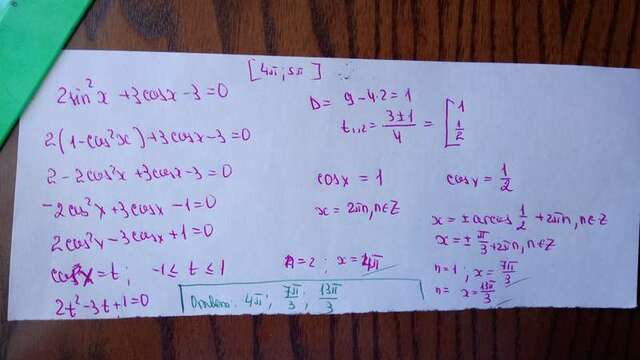 [4π; 5π]
2sin²x + 3cosx - 3 = 0
2(1 - cos²x) + 3cosx - 3 = 0
2 - 2cos²x + 3cosx - 3 = 0
-2cos²x + 3cosx - 1 = 0
2cos²x - 3cosx + 1 = 0
cosx = t; -1 ≤ t ≤ 1
2t² - 3t + 1 = 0
D = 9 - 4·2 = 1
t₁,₂ = (3±1)/4 = [1; 1/2
cosx = 1
x = 2πn, n∈Z
n = 2; x = 4π
cosx = 1/2
x = ± arccos 1/2 + 2πn, n∈Z
x = ± π/3 + 2πn, n∈Z
n = 1; x = 7π/3
n = x = 13π/3
Ответ: 4π; 7π/3; 13π/3